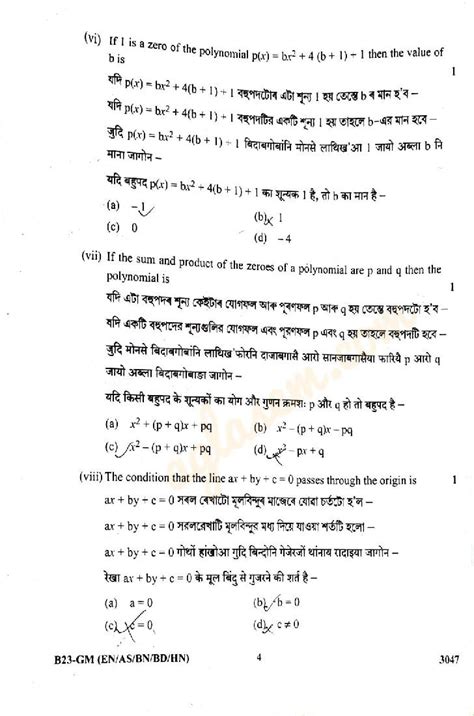 (vi) If 1 is a zero of the polynomial p(x) = bx² + 4 (b + 1) + 1 then the value of
b is
1
যদি p(x) = bx² + 4(b + 1) + 1 বহুপদটোৰ এটা শূন্য 1 হয় তেন্তে b ৰ মান হ'ব –
যদি p(x) = bx² + 4(b + 1) + 1 বহুপদটির একটি শূন্য 1 হয় তাহলে b-এর মান হবে –
जुदि p(x) = bx² + 4(b + 1) + 1 बिदाबगोबांनि मोनसे लाथिख'आ 1 जायो अब्ला b नि
माना जागोन –
यदि बहुपद p(x) = bx² + 4(b + 1) + 1 का शून्यक 1 है, तो b का मान है –
(a) –1
(b) 1
(c) 0
(d) –4
(vii) If the sum and product of the zeroes of a polynomial are p and q then the
polynomial is
1
যদি এটা বহুপদৰ শূন্য কেইটাৰ যোগফল আৰু পূৰণফল p আৰু q হয় তেন্তে বহুপদটো হ'ব –
যদি একটি বহুপদের শূন্যগুলির যোগফল এবং পূরণফল p এবং q হয় তাহলে বহুপদটি হবে –
जुदि मोनसे बिदाबगोबांनि लाथिख'फोरनि दाजाबगासै आरो सानजाबगासैया फारियै p आरो q
जायो अब्ला बिदाबगोबाङा जागोन –
यदि किसी बहुपद के शून्यकों का योग और गुणन क्रमशः p और q हो तो बहुपद है –
(a) x² + (p + q)x + pq
(b) x² – (p + q)x – pq
(c) x² – (p + q)x + pq
(d) x² – px + q
(viii) The condition that the line ax + by + c = 0 passes through the origin is
1
ax + by + c = 0 সৰল ৰেখাটো মূলবিন্দুৰ মাজেৰে যোৱা চৰ্তটো হ'ল –
ax + by + c = 0 সরলরেখাটি মূলবিন্দুর মধ্য দিয়ে যাওয়া শর্তটি হলো –
ax + by + c = 0 गोथों हांखोआ गुदि बिन्दोनि गेजेरजों थांनाय रादाइया जागोन –
रेखा ax + by + c = 0 के मूल बिंदु से गुजरने की शर्त है –
(a) a = 0
(b) b = 0
(c) c = 0
(d) c ≠ 0
B23-GM (EN/AS/BN/BD/HN)
4
3047